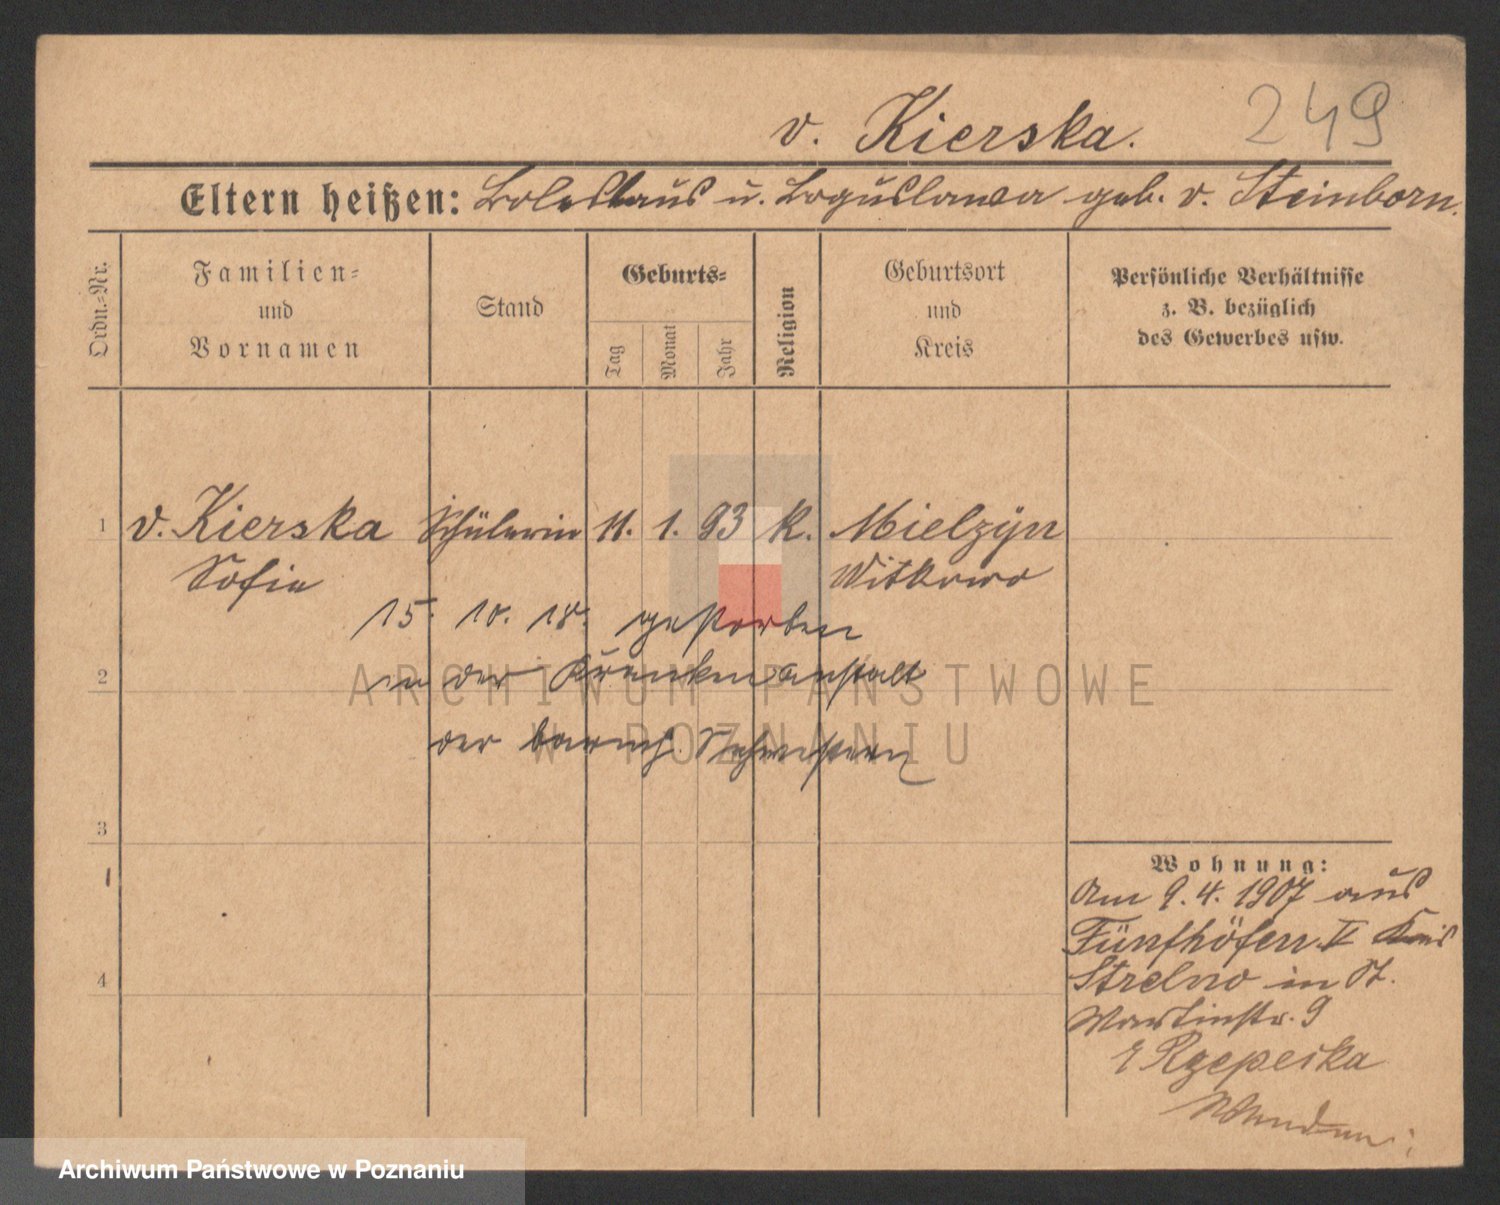 249
v. Kierska.
Eltern heißen: Boleslaus u. Boguslawa geb. v. Steinborn.
Ordn.=Nr.
Familien=
und
Vornamen
Stand
Geburts=
Tag
Monat
Jahr
Religion
Geburtsort
und
Kreis
Persönliche Verhältnisse
z. B. bezüglich
des Gewerbes usw.
1 v. Kierska Schülerin 11. 1. 93 k. Mielzyn
Sofie Witkowo
15. 10. 18. gestorben
2 in der Krankenanstalt
der barmh. Schwestern
3
1
4
Wohnung:
Am 9.4.1907 aus
Fünfhöfen II Kreis
Strelno in St.
Martinstr. 9
Rzepeska
ARCHIWUM PAŃSTWOWE
W POZNANIU
Archiwum Państwowe w Poznaniu